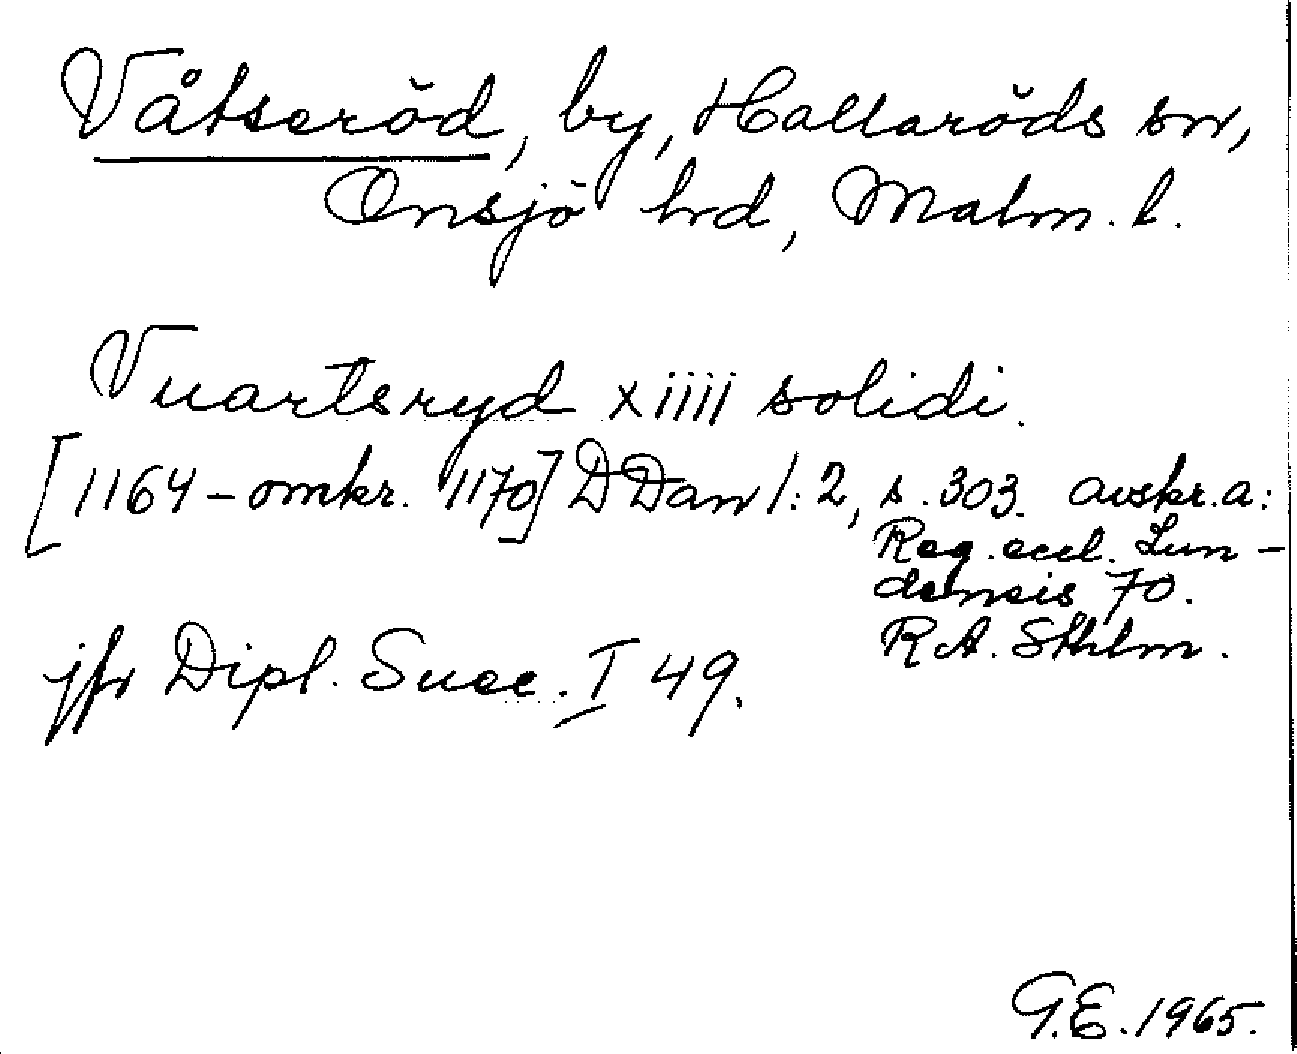 Våtseröd, by, Hallaröds sn,
Onsjö hrd, Malm. l.
Vuartsryd xiiii solidi.
[1164-omkr. 1170] DDan 1:2, s. 303. avskr. a:
Reg. eccl. Lun-
densis 70.
RA. Sthlm.
jfr Dipl. Suec. I 49.
G.E. 1965.